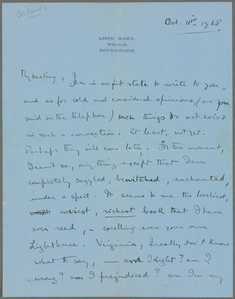 Oct. 11th 1928
LONG BARN,
WEALD,
SEVENOAKS.
My darling, I am in no fit state to write to you –
and as for cold and considered opinions, (as you
said on the telephone) such things do not exist
in such a connection. At least, not yet.
Perhaps they will come later. For the moment,
I can't say anything except that I am
completely dazzled, bewitched, enchanted,
under a spell. It seems to me the loveliest,
wisest, richest book that I have
ever read, – excelling even your own
Lighthouse. Virginia, I really don't know
what to say, – am I right? am I
wrong? am I prejudiced? am I in my